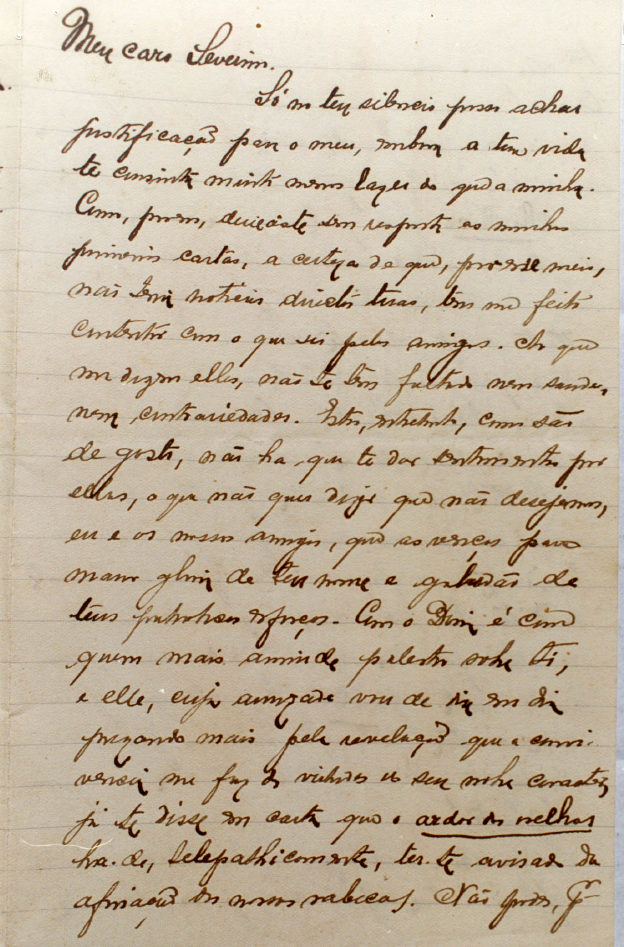 Meu caro Severino.
Só no teu silencio posso achar
justificação para o meu, embora a tua vida
te consinta muito menos lazer do que a minha.
Como, porem, deixaste sem resposta as minhas
primeiras cartas, a certeza de que, por esse meio,
não terei noticias directas tuas, tem me feito
contentar com o que sei pelos amigos. Ao que
me dizem elles, não te tem faltado nem saude,
nem contrariedades. Estas, entretanto, como são
de gosto, não ha que te dar sentimentos por
ellas, o que não quer dizer que não desejemos,
eu e os nossos amigos, que as venças para
maior gloria de teu nome e galardão de
teus patrioticos esforços. Com o Domi é com
quem mais amiude palestro sobre ti,
e elle, cuja amizade vou de dia em dia
prezando mais pela revelação que a convi-
vencia me faz das virtudes do seu nobre caracter,
já te disse em carta que o ardor das orelhas
ha-de, telepathicamente, ter-te avisado da
afinação das nossas rabecas. Não podes, p<sup>r</sup>-